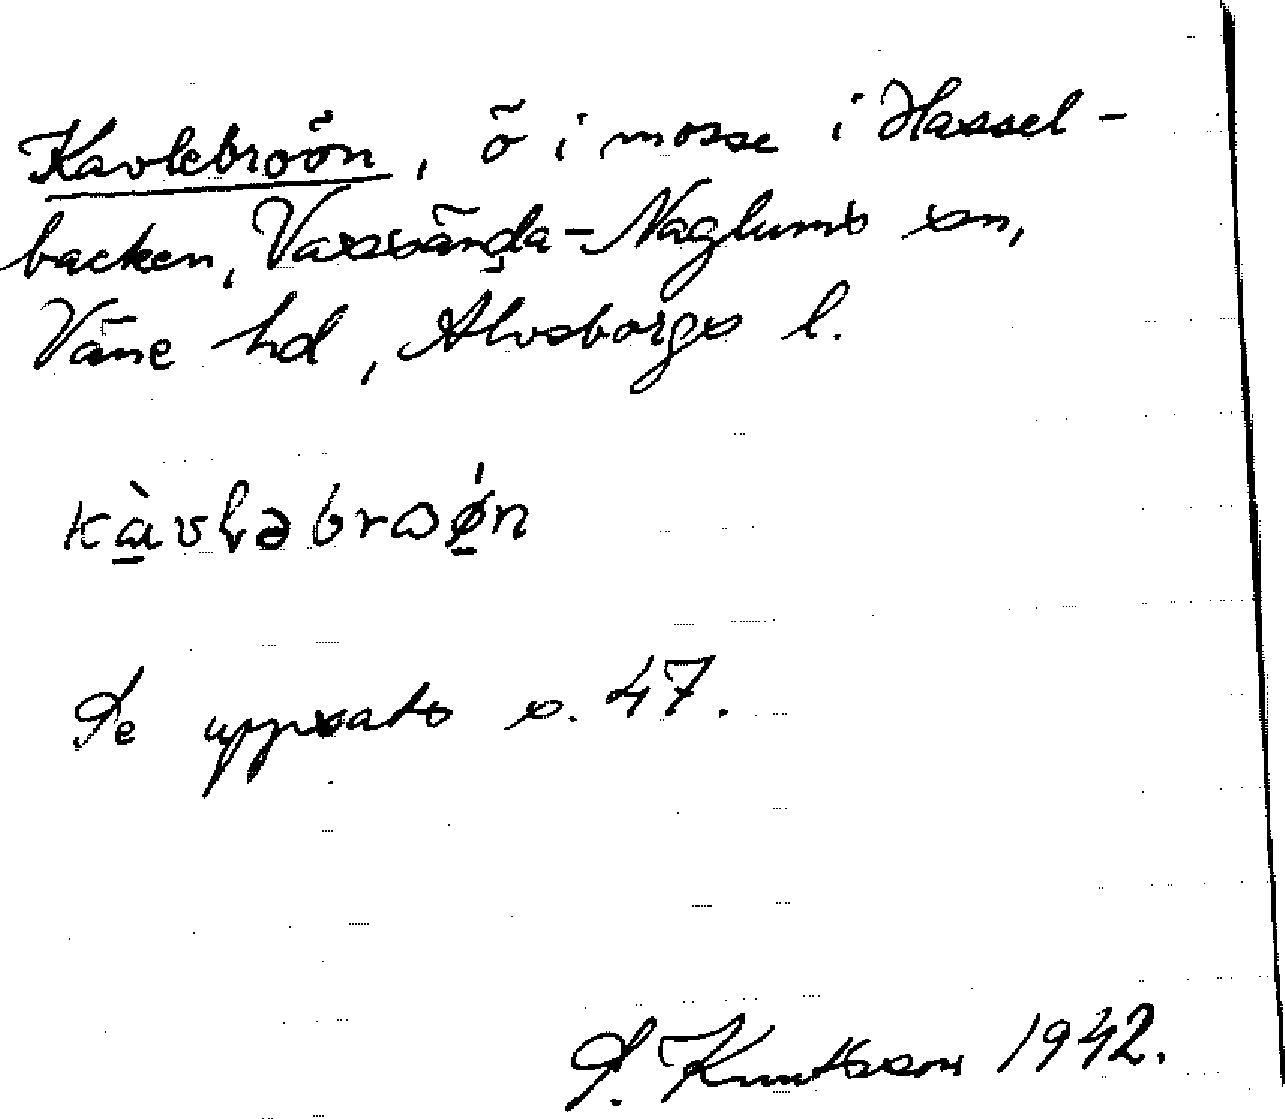 Kavlebroön, ö i mosse i Hassel-
backen, Vassända-Naglums sn,
Väne hd, Älvsborgs l.
kàvḷəbrωǿn
Se uppsats s. 47.
S. Knutsson 1942.